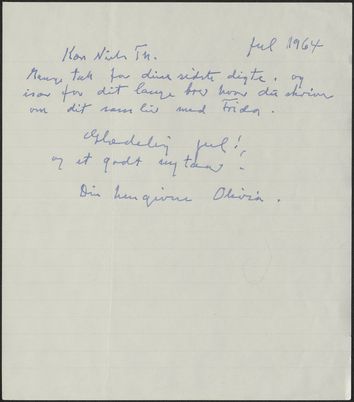 Jul 1964
Kære Niels Th.
Mange tak for dine sidste digte, og
især for dit lange brev hvor du skriver
om dit samliv med Frida.
Glædelig jul!
og et godt nytaar.
Din hengivne Olivia.